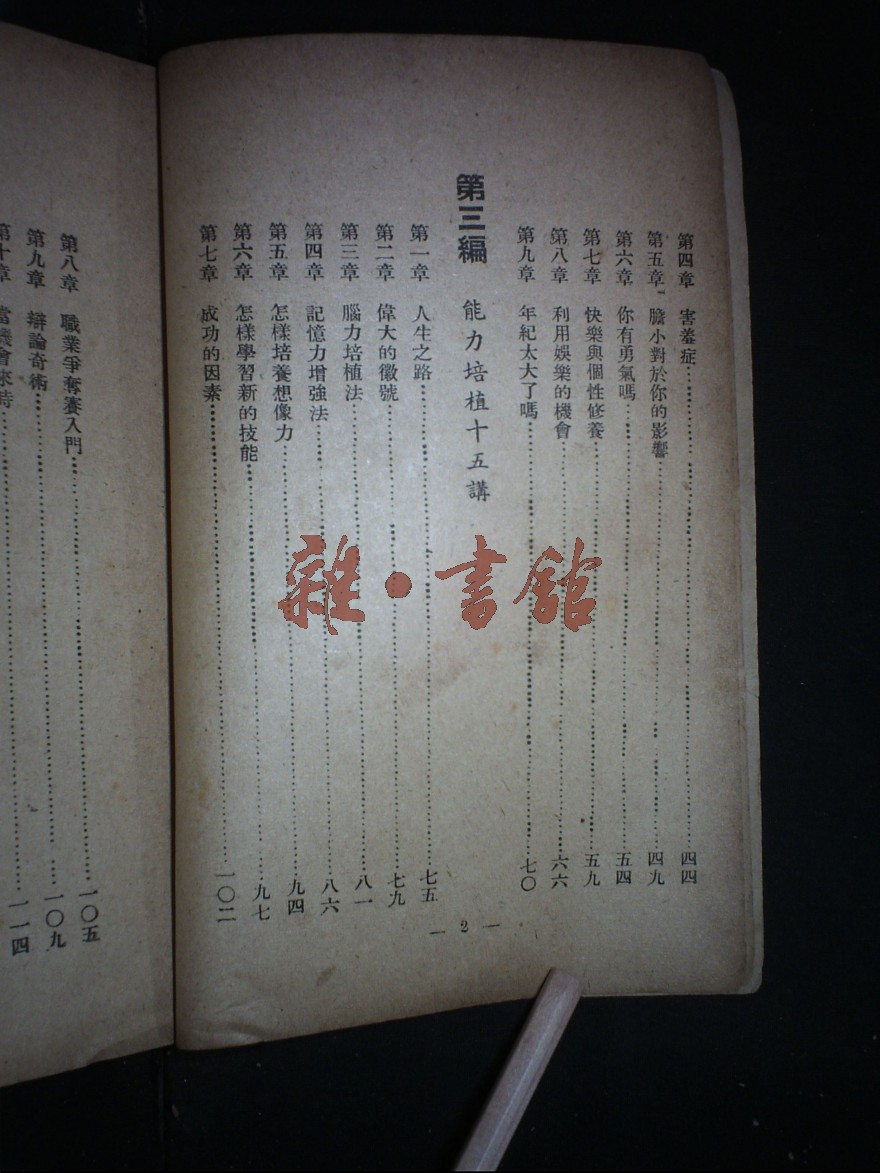 第四章 害羞症 四四
第五章 膽小對於你的影響 四九
第六章 你有勇氣嗎 五四
第七章 快樂與個性修養 五九
第八章 利用娛樂的機會 六六
第九章 年紀太大了嗎 七〇
第三編 能力培植十五講
第一章 人生之路 七五
第二章 偉大的徽號 七九
第三章 腦力培植法 八一
第四章 記憶力增強法 八六
第五章 怎樣培養想像力 九四
第六章 怎樣學習新的技能 九七
第七章 成功的因素 一〇二
— 2 —
第八章 職業爭奪賽入門 一〇五
第九章 辯論奇術 一〇九
第十章 當機會來時 一一四
雜·書館